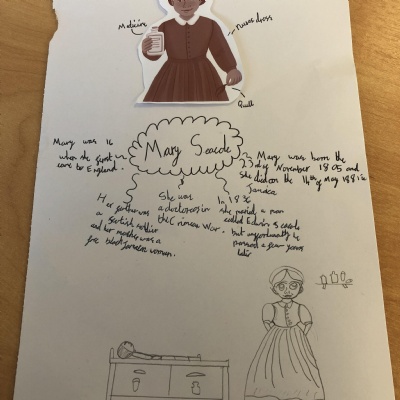 Medicine
nurses dress
Quill
Mary Seacole
Mary was 16
when she first
came to England.
Mary was born the
23rd of November 1805 and
She died on the 14th of May 1881 in
Jamaica
Her father was
a Scottish soldier
and her mother was a
free black Jamaican woman.
She was
a doctoress in
the Crimean War.
In 1836
she married a man
called Edwin Seacole
but unfortunately he
a few years
later